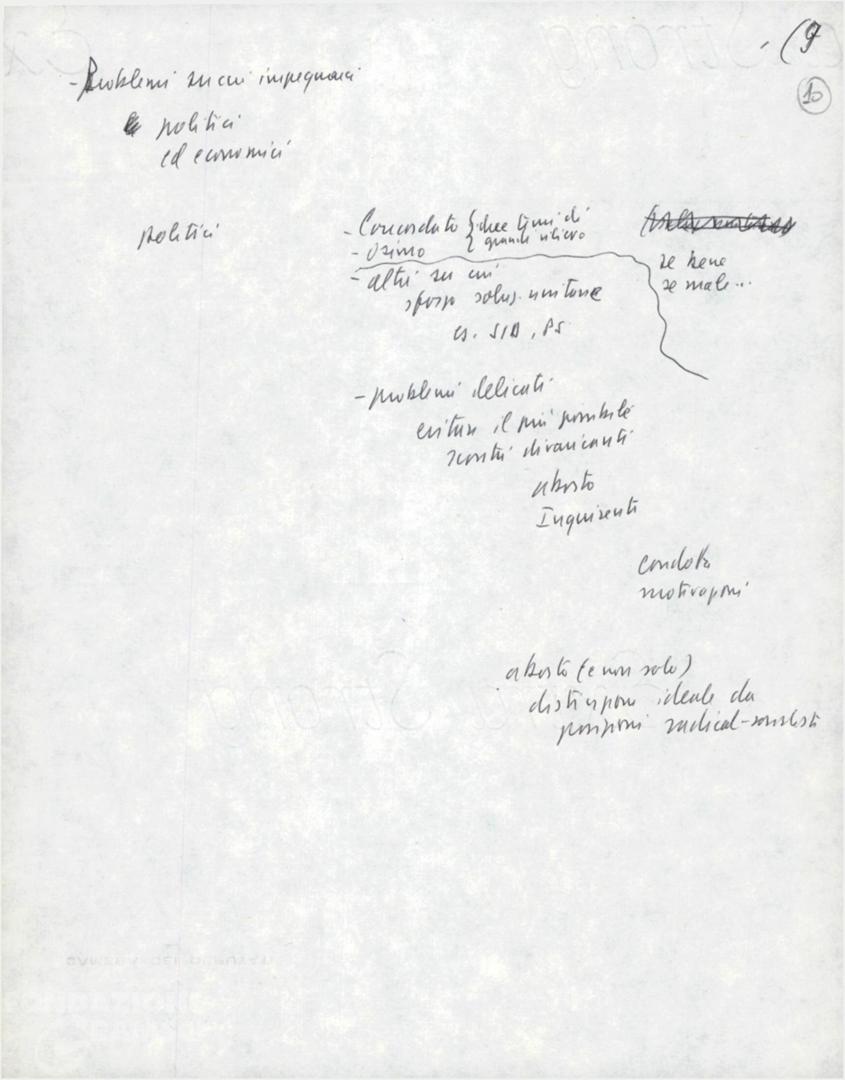 (9
10
- Problemi su cui impegnarci
politici
ed economici
politici
- Concordato { due temi di
- Osimo { grande rilievo
se bene
se male...
- altri su cui
sforzo soluz. unitarie
es. SID, PS
- problemi delicati
evitare il più possibile
scontri divaricanti
aborto
Inquirenti
condotta
motivazioni
aborto (e non solo)
distinzione ideale da
posizioni radical-socialisti